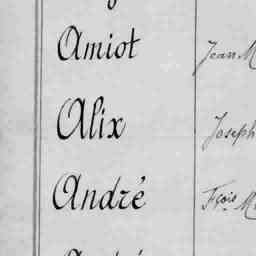 Amiot Jean M
Alix Joseph
André Fçois M